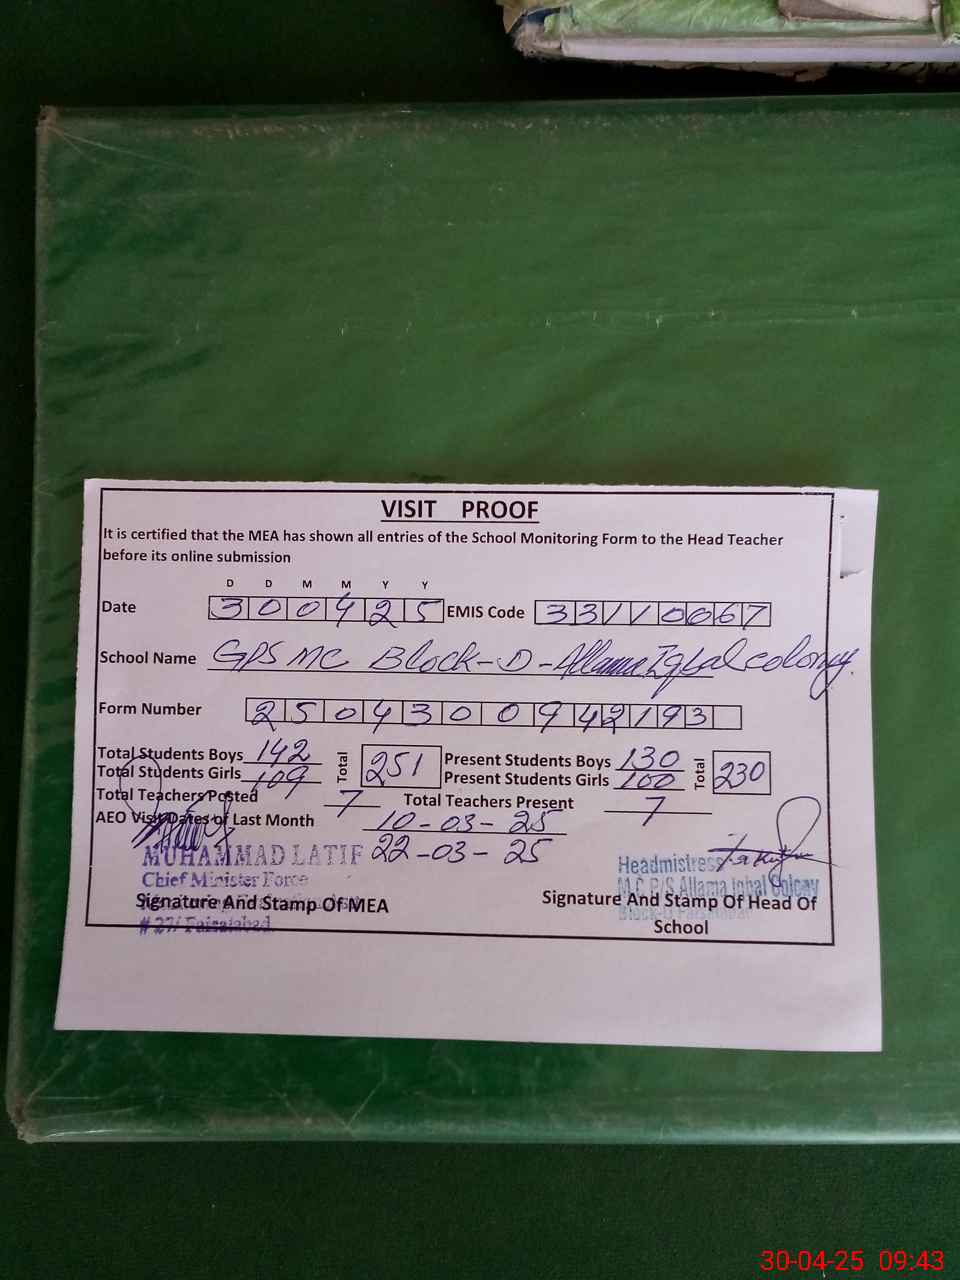 VISIT PROOF
It is certified that the MEA has shown all entries of the School Monitoring Form to the Head Teacher
before its online submission
D D M M Y Y
Date 300425 EMIS Code 33110667
School Name GPS MC Block-D-Allama Iqbal colony.
Form Number 2504300942193
Total Students Boys 142 Total 251 Present Students Boys 130 Total 230
Total Students Girls 109 Present Students Girls 100
Total Teachers Posted 7 Total Teachers Present 7
AEO Visit Dates of Last Month 10-03-25
22-03-25
MUHAMMAD LATIF
Chief Minister Force
# 27/ Faisalabad.
Signature And Stamp Of MEA
Headmistress
M.C P/S Allama Iqbal Colony
Block-D Faisalabad
Signature And Stamp Of Head Of
School
30-04-25 09:43